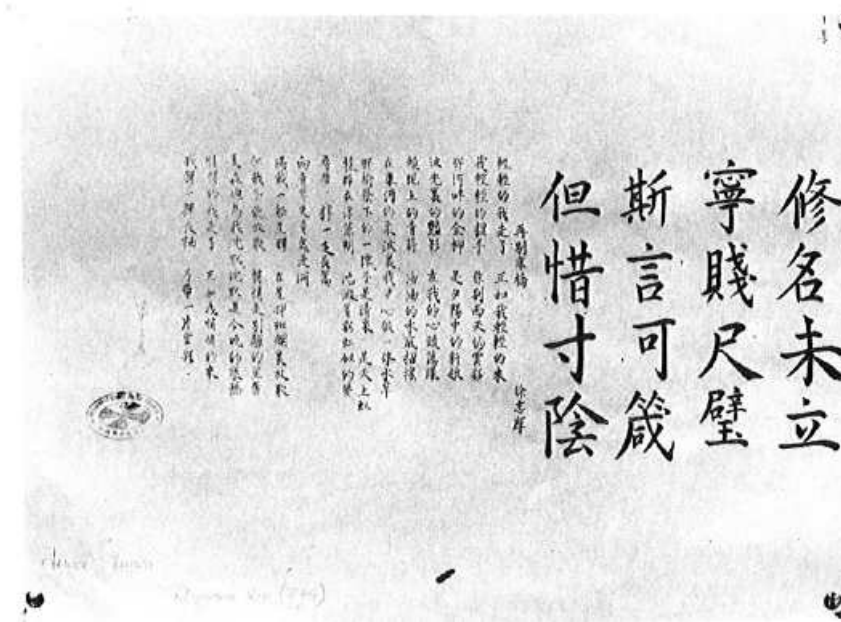 修名未立
寧賤尺璧
斯言可箴
但惜寸陰
再別康橋 徐志摩
輕輕的我走了 正如我輕輕的來
我輕輕的招手 作別西天的雲彩
那河畔的金柳 是夕陽中的新娘
波光裏的豔影 在我的心頭蕩漾
軟泥上的青荇 油油的水底招搖
在康河的柔波裏 我甘心做一條水草
那榆蔭下的一潭 不是清泉 是天上虹
揉碎在浮藻間 沉澱着彩虹似的夢
尋夢 撐一支長篙
向青草更青處漫溯
滿載一船星輝 在星輝斑斕裏放歌
但我不能放歌 悄悄是別離的笙簫
夏蟲也為我沉默 沉默是今晚的康橋
悄悄的我走了 正如我悄悄的來
我揮一揮衣袖 不帶走一片雲彩